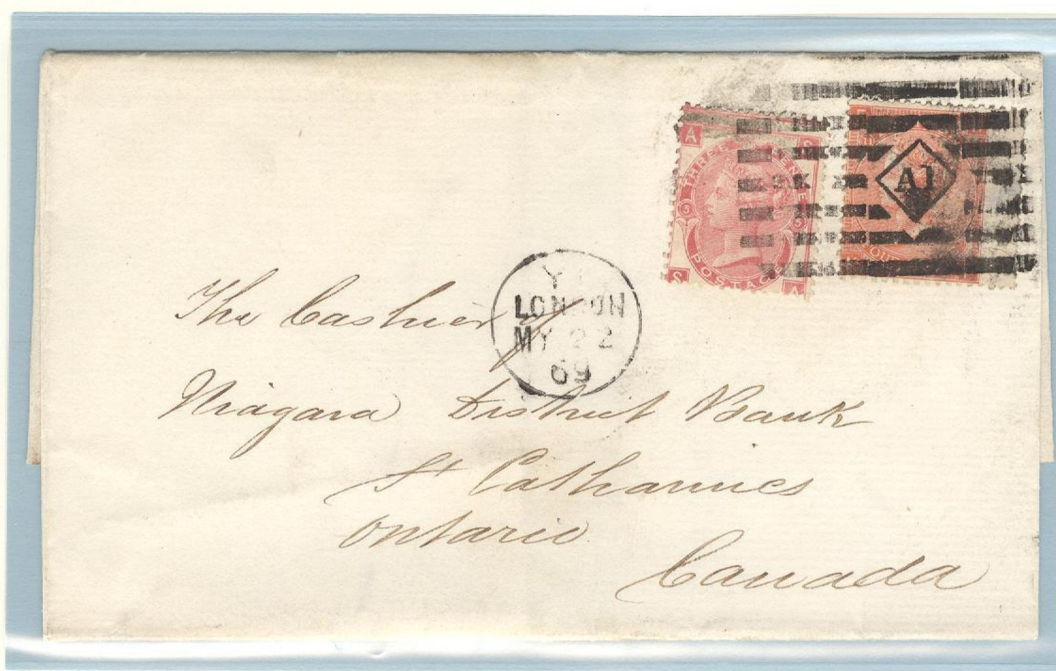 A
THREE PENCE
POSTAGE
S A
A1
Y
LONDON
MY 22
69
The Cashier of
Niagara District Bank
St Catharines
Ontario
Canada